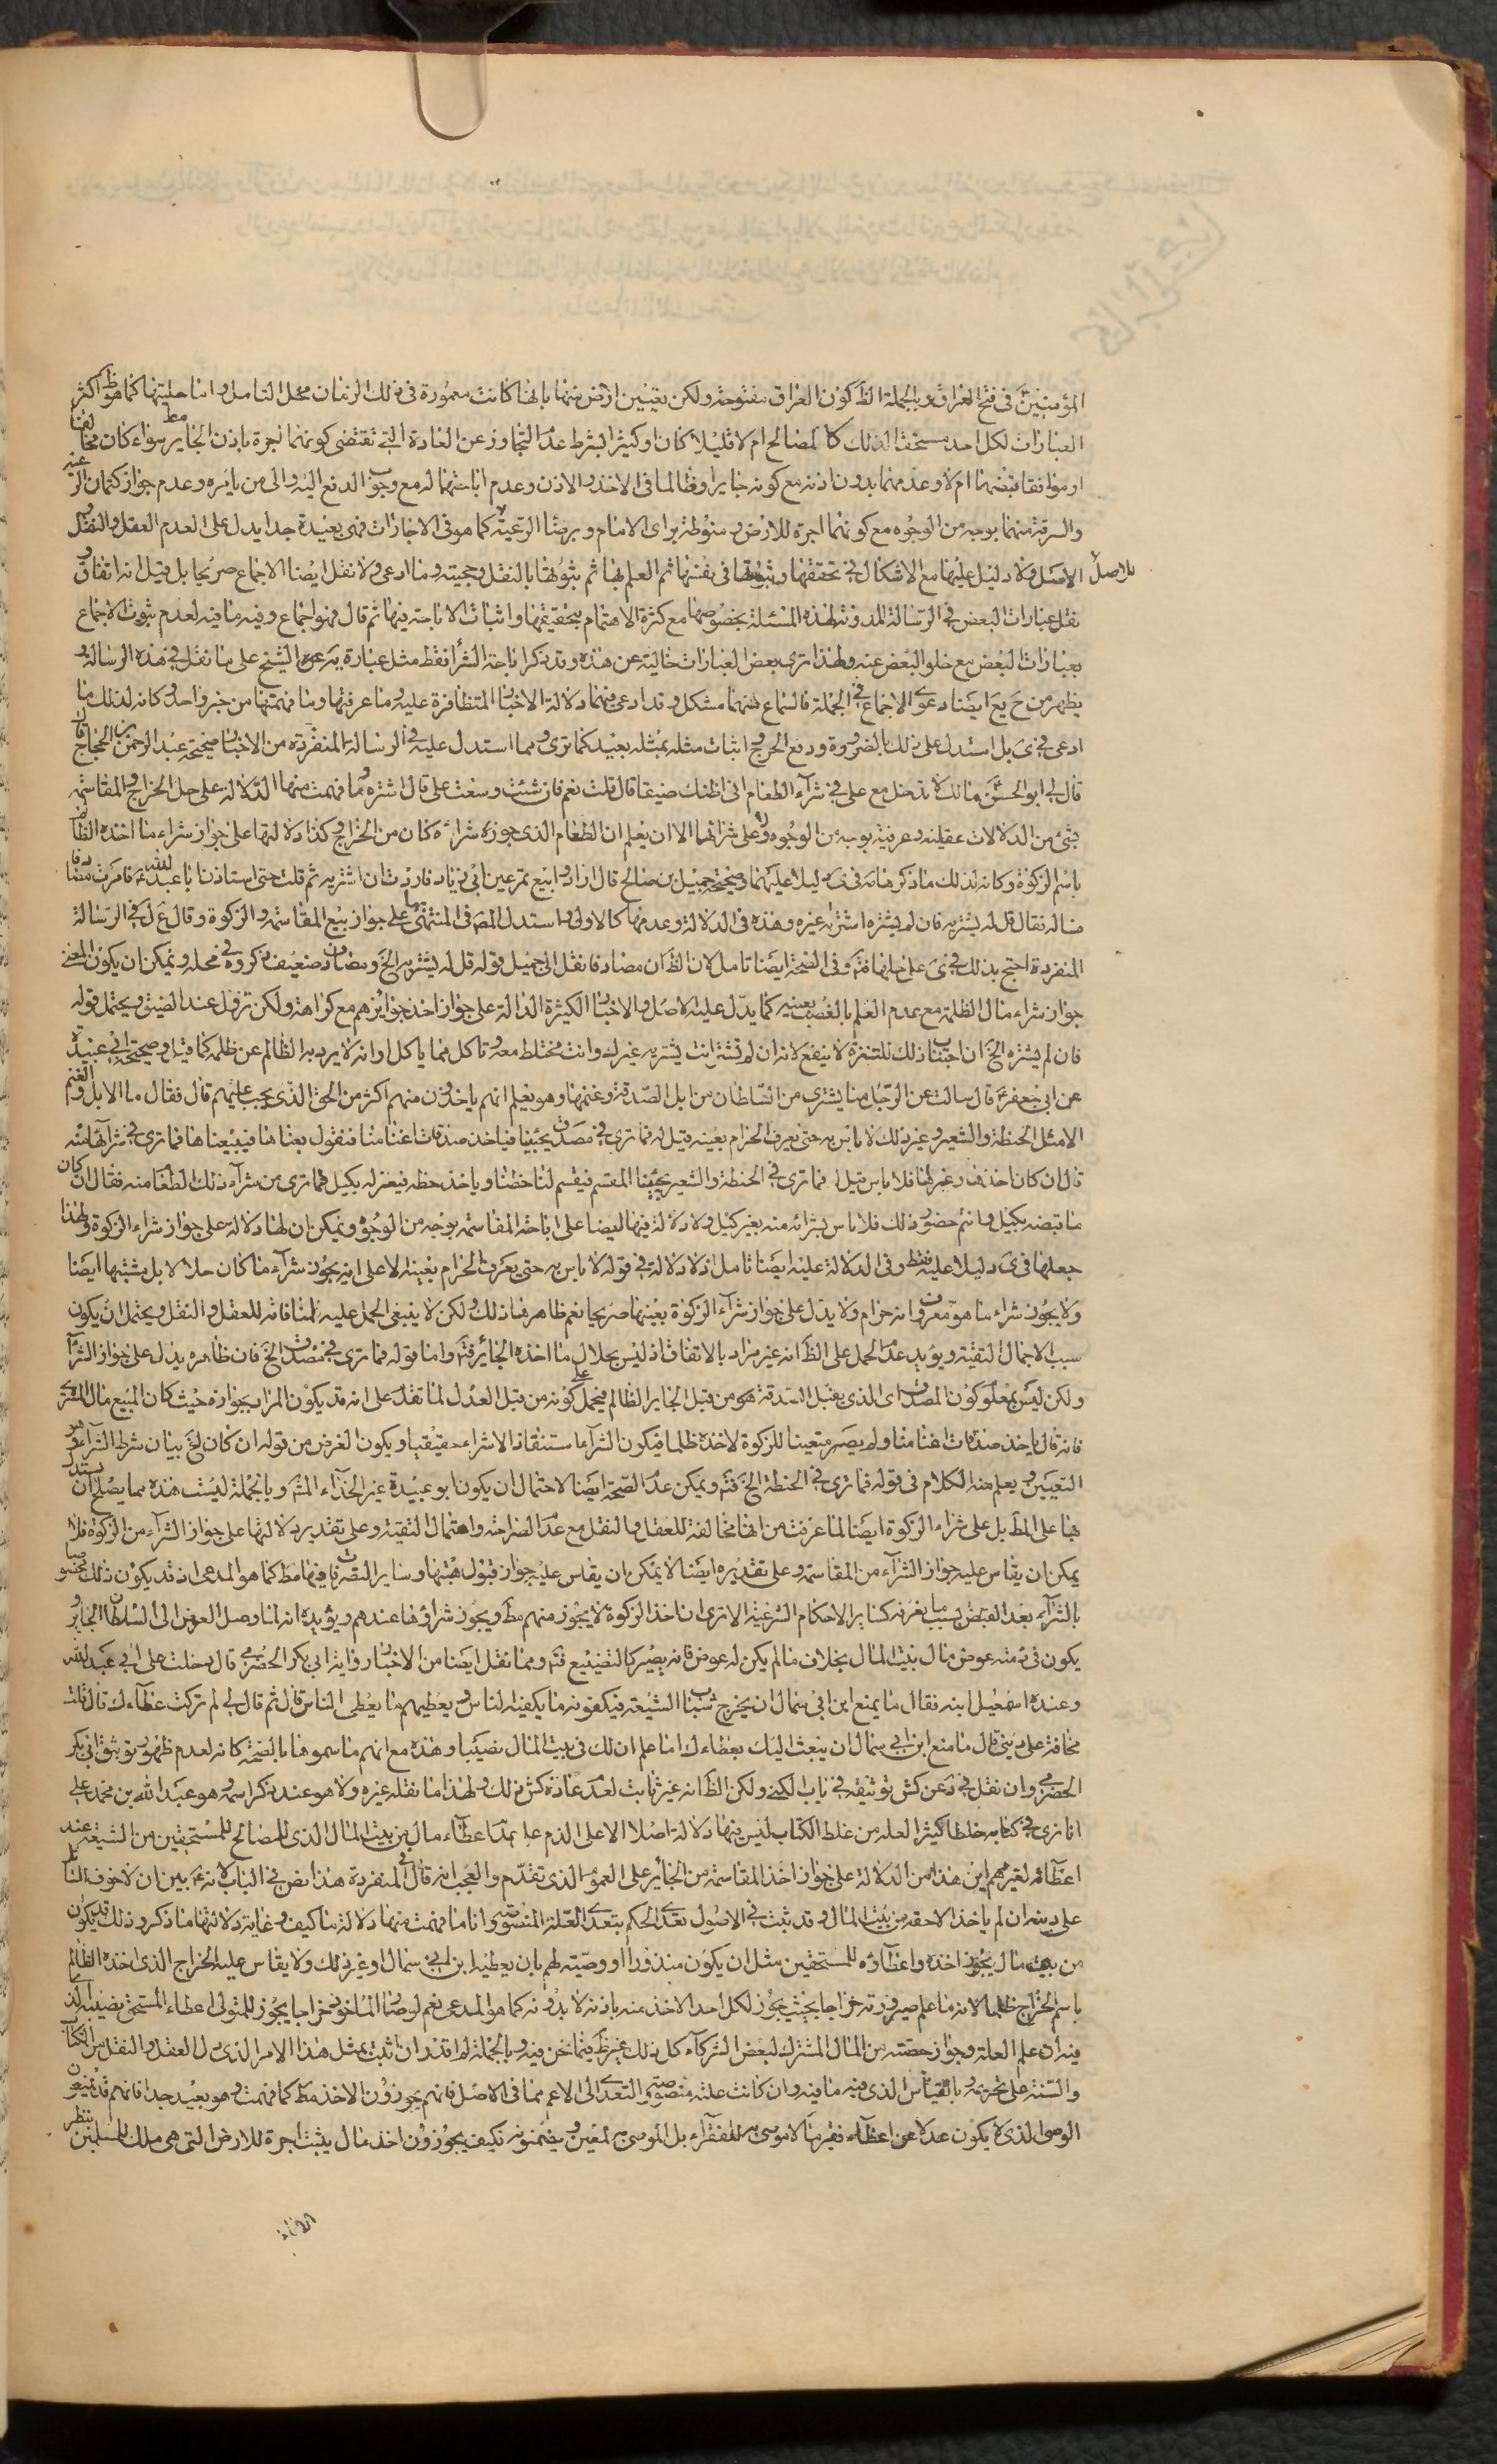 المؤمنين ع في فتح العراق وبالجملة الظ كون العراق مفتوحة ولكن تعيين ارض منها بانها كانت معمورة في ذلك الزمان محل التامل واما حليتها كما هو ظ اكثر
العبارات لكل احد مستحقا لذلك كالمصالح ام لا قليلا كان او كثيرا بشرط عدم التجاوز عن العادة التي تقتضي كونهما اجرة باذن الجاير مط سواء كان مخالفا
او موافقا قبضهما ام لا وعدمهما بدون اذنه مع كونه جايرا وظالما في الاخذ والاذن وعدم اباحتهما له مع وجوب الدفع اليه والى من يامره وعدم جواز كتمان الرعية
والسرقة منهما بوجه من الوجوه مع كونهما اجرة للارض ومنوطة براى الامام وبرضا الرعية كما هو في الاجازات فهي بعيدة جدا يدل على العدم العقل والنقل
الاصل ولا دليل عليها مع الاشكال في تحققها وثبوتها في نفسها ثم العلم بها ثم ثبوتها بالنقل وحجيته وما ادعى ولا نقل ايضا الاجماع صريحا بل قيل انه اتفاق و
نقل عبارات البعض في الرسالة المدونة لهذه المسئلة بخصوصها مع كثرة الاهتمام بتحقيقها واثبات الاباحة فيها ثم قال فهو اجماع وفيه ما فيه لعدم ثبوت الاجماع
بعبارات البعض مع خلو البعض عنه ولهذا ترى بعض العبارات خالية عن هذه وقد ذكر اباحة الشرا فقط مثل عبارة يه عن الشيخ على ما نقل في هذه الرسالة و
يظهر من ح يع ايضا دعوى الاجماع في الجملة فالسماع منهما مشكل وقد ادعى فيهما دلالة الاخبار المتظافرة عليه وما عرفتها وما فهمتها من خبر واحد وكانه لذلك ما
ادعى في ى بل استدل على ذلك بالضرورة ودفع الحرج واثبات مثله بمثله بعيد كما ترى ومما استدل عليه في الرسالة المنفردة من الاخبار صحيحة عبد الرحمن بن الحجاج قال
قال لي ابو الحسن ع مالك لا تدخل مع علي في شراء الطعام اني اظنك ضيقا قال قلت نعم فان شئت وسعت على قال اشتره وما فهمت منها الدلالة على حل الخراج والمقاسمة
بشئ من الدلالات عقلية وعرفية بوجه من الوجوه ولا على شرائهما الا ان يعلم ان الطعام الذى جوزه شراءه كان من الخراج وكذا دلالتها على جواز شراء ما اخذه الظالم
باسم الزكوة وكانه لذلك ما ذكرها نه في ى دليلا عليهما وصحيحة جميل بن صالح قال ارادوا بيع تمر عين ابي زياد فاردت ان اشتريه ثم قلت حتى استاذن ابا عبد الله ع فامرت مصادفا
فساله فقال قل له يشتريه فان لم يشتره اشتراه غيره وهذه في الدلالة وعدمها كالاولى واستدل المص في المنتهى بها على جواز بيع المقاسمة والزكوة وقال ع ل في الرسالة
المنفردة احتج بذلك في ى على حلهما فت وفي الصحة ايضا تامل لان الظ ان مصادفا نقل الى جميل قوله قل له يشتريه الخ ومصادف ضعيف مذكور في محله ويمكن ان يكون المعنى
جواز شراء مال الظلمة مع عدم العلم بالغصب بعينه كما يدل عليه الاصل والاخبار الكثيرة الدالة على جواز اخذ جوايزهم مع كراهة ولكن تزول عند الضيق ويحتمل قوله
فان لم يشتره الخ ان اجتناب ذلك للتنزه لا ينفع لانه ان لم تشتر انت يشتريه غيرك وانت مختلط معه وتاكل مما ياكل او انه لا يرد به الظالم عن ظلمه كما قيل وصحيحة ابي عبيدة
عن ابي جعفر ع قال سالت عن الرجل منا يشترى من السلطان من ابل الصدقة وغنمها وهو يعلم انهم ياخذون منهم اكثر من الحق الذى يجب عليهم قال فقال ما الابل والغنم
الا مثل الحنطة والشعير وغير ذلك لا باس به حتى يعرف الحرام بعينه قيل له فما ترى في مصدق يجيئنا فياخذ صدقات اغنامنا فنقول بعناها فيبيعناها فما ترى في شرائها منه
قال ان كان اخذها وعزلها فلا باس قيل له فما ترى في الحنطة والشعير يجيئنا القسم فيقسم لنا حظنا وياخذ حظه فيعزله بكيل فما ترى من شراء ذلك الطعام منه فقال ان كان
ما قبضه بكيل وانتم حضور ذلك فلا باس بشرائه منه بغير كيل ولا دلالة فيها ايضا على اباحة المقاسمة بوجه من الوجوه ويمكن ان لها دلالة على جواز شراء الزكوة ولهذا
جعلها في ى دليلا عليه فقط وفي الدلالة عليه ايضا تامل اذ لا دلالة في قوله لا باس به حتى يعرف الحرام بعينه الا على انه يجوز شراء ما كان حلالا بل مشتبها ايضا
ولا يجوز شراء ما هو معروف انه حرام ولا يدل على جواز شراء الزكوة بعينها صريحا نعم ظاهرها ذلك ولكن لا ينبغي الحمل عليه لمنافاته للعقل والنقل ويحتمل ان يكون
سبب الاجمال التقية ويؤيد عدم الحمل على الظ انه غير مراد بالاتفاق اذ ليس بحلال ما اخذه الجاير فت واما قوله فما ترى في مصدق الخ فان ظاهره يدل على جواز الشراء
ولكن ليس بمعلوم كون المصدق اى الذى يقبل الصدقة هو من قبل الجاير الظالم فيحمل على كونه من قبل العدل لما تقدم على انه قد يكون المراد بجوازه حيث كان المبيع مال المشترى
فانه قال ياخذ صدقات اغنامنا ولم يصر متعينا للزكوة لاخذه ظلما فيكون الشراء استنقاذا لا شراء حقيقيا ويكون الغرض من قوله ان كان الخ بيان شرط الشراء وهو
التعيين ويعلم منه الكلام في قوله فما ترى في الحنطة الخ فت ويمكن عدم الصحة ايضا لاحتمال ان يكون ابو عبيدة غير الحذاء المشهور وبالجملة ليست هذه مما يصلح ان يستدل
بها على المط بل على شراء الزكوة ايضا لما عرفت من انها مخالفة للعقل والنقل مع عدم الصراحة واحتمال التقية وعلى تقدير دلالتها على جواز الشراء من الزكوة فلا
يمكن ان يقاس عليه جواز الشراء من المقاسمة وعلى تقديره ايضا لا يمكن ان يقاس عليه جواز قبول هبتها وساير التصرفات فيها مط كما هو المدعى اذ قد يكون ذلك مخصوصا
بالشراء بعد القبض لسبب ما نعرفه كساير الاحكام الشرعية الا ترى ان اخذ الزكوة لا يجوز منهم مط ويجوز شراؤها عندهم ويؤيده انه لما وصل العوض الى السلطان الجاير و
يكون في ذمته عوض مال بيت المال بخلاف ما لم يكن له عوض فانه يصير كالتضييع فت ومما نقل ايضا من الاخبار رواية ابي بكر الحضرمي قال دخلت على ابي عبد الله
وعنده اسمعيل ابنه فقال ما يمنع ابن ابي سمال ان يخرج شباب الشيعة فيكفونه ما يكفيه الناس ويعطيهم ما يعطى الناس قال ثم قال لي لم تركت عطاءك قال قلت
مخافة على ديني قال ما منع ابن ابي سمال ان يبعث اليك بعطاءك اما علم ان لك في بيت المال نصيبا وهذه مع انهم ما سموها بالصحة كانه لعدم ظهور توثيق ابي بكر
الحضرمي وان نقل في د عن كش توثيقه في باب الكنى ولكن الظ انه غير ثابت لعدم عادة كش ذلك ولهذا ما نقله غيره ولا هو عند ذكر اسمه وهو عبد الله بن محمد على
انا نرى في كتابه خلطا كثيرا لعله من غلط الكتاب ليس فيها دلالة اصلا الا على الذم على عدم اعطاء مال من بيت المال الذى للمصالح للمستحقين من الشيعة عند
اعطائه لغيرهم اين هذا من الدلالة على جواز اخذ المقاسمة من الجاير على العموم الذى تقدم والعجب انه قال في المنفردة هذا نص في الباب لانه ع بين ان لا خوف للسائل
على دينه ان لم ياخذ الا حقه من بيت المال وقد ثبت في الاصول تعدى الحكم بتعدى العلة المنصوصة وانا ما فهمت منها دلالة ما كيف وغاية دلالتها ما ذكر وذلك قد يكون
من بيت مال يجوز اخذه واعطاؤه للمستحقين مثل ان يكون منذورا او وصية لهم بان يعطيه ابن ابي سمال وغير ذلك ولا يقاس عليه الخراج الذى اخذه الظالم
باسم الخراج ظلما لانه ما علم صيرورته خراجا بحيث يجوز لكل احد الاخذ منه باذنه لا بدونه كما هو المدعى نعم لو صار الماخوذ خراجا يجوز للمتولى اعطاء المستحق نصيبه الذى
فيه ان علم العلة وجواز حصته من المال المشترك لبعض الشركاء كل ذلك غير ظ فيما نحن فيه وبالجملة لم اقدر ان اثبت بمثل هذا الامر الذى دل العقل والنقل من الكتاب
والسنة على تحريمه بالقياس الذى فيه ما فيه وان كانت علته منصوصة والتعدى الى الاعم مما في الاصل فانهم يجوزون الاخذ مط كما فهمت وهو بعيد جدا فانهم قد يمنعون
الوصى الذى لا يكون عدلا عن اعطاء فقير ما لا موصى به للفقراء بل الموصى به لمعين ويضمنونه فكيف يجوزون اخذ مال يثبت اجرة للارض التى هى ملك للمسلمين بنظر